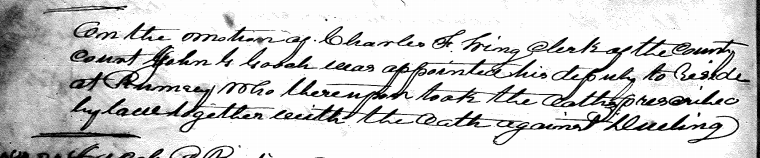 On the motion of Charles F. Wing Clerk of the County
Court John G Gooch was appointed his deputy to reside
at Rumsey who thereupon took the oaths prescribed
by law together with the oath against Dueling